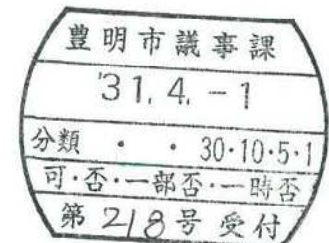 豊明市議事課
'31.4.-1
分類 ・ ・ 30・10・5・1
可・否・一部否・一時否
第218号受付